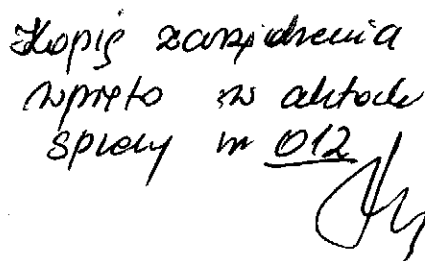 Kopię zarządzenia
wpięto w aktach
sprawy nr 012